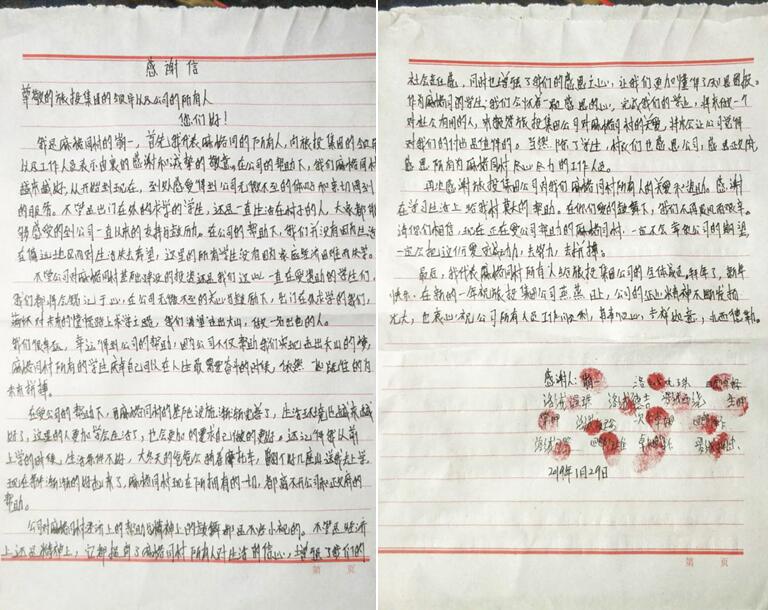 感谢信
尊敬的旅投集团的领导以及公司的所有人
你们好！
我是麻撒同村的 首先我代表麻撒同村所有人，向旅投集团的领导
以及工作人员表示由衷的感谢和诚挚的敬意。在公司的帮助下，我们麻撒同村
越来越好，从开始到现在，到处感受得到公司无微不至的体贴和亲切周到
的服务。不管是出门在外的求学的学生，还是一直生活在村子的人，大家都能
够感受的到公司一直以来的支持与鼓励。在公司的帮助下，我们并没有因为生活
在偏远地区而对生活失去希望，这里的所有学生没有因为家庭经济困难而失学。
不管公司对麻撒同村基础建设的投资还是我们这些一直在受资助的学生们，
我们都将会铭记于心，在公司无微不至的关心与鼓励下，出门在外求学的我们，
满怀对未来的憧憬踏上求学之路，我们渴望走出大山，做一名出色的人。
我们很幸运，幸运得到公司的帮助，因为公司不仅帮助我们实现走出大山的梦，
麻撒同村所有的学生庆幸自己可以在人生最需要奋斗的时候，依然 的为
未来拼搏。
在贵公司的帮助下，麻撒同村的基础设施渐渐完善了，生活环境也越来越
好了，这里的人更加学会生活了，也会更加的要求自己做的更好。还记得我以前
上学的时候，生活条件不好，大冬天的爸爸会骑着摩托车，翻个好几座山送我去上学，
现在条件渐渐的好起来了，麻撒同村现在所拥有的一切，都离不开公司和政府的
帮助。
公司对麻撒同村经济上的帮助与精神上的鼓舞都是不容小视的。不管是经济
上还是精神上，它都提高了麻撒同村所有人对生活的信心，增强了我们的
第 页
社会责任感，同时也增强了我们的感恩之心，让我们更加懂得了知恩图报。
作为麻撒同的学生，我们会怀着一颗感恩的心，完成我们的学业，将来做一个
对社会有用的人，来报答旅投集团公司对麻撒同村的关爱，并永会让公司觉得
对我们的付出是值得的，当然除了学生，村民们也感恩公司，感恩政府，
感恩所有为麻撒同村尽心尽力的工作人员。
再次感谢旅投集团公司对我们麻撒同村所有人的关爱和资助。感谢
在学习生活上给我村莫大的帮助。在你们爱的鼓舞下，我们不再畏风雨艰辛。
请你们相信，现在正在受公司帮助的麻撒同村，一定不会辜负公司的期望，
一定会把这份爱变成动力，去努力，去拼搏。
最后，我代表麻撒同村所有人给旅投集团公司的全体 新年了，新年
快乐。在新的一年祝旅投集团公司蒸蒸日上，公司的企业精神不断发扬
光大，也衷心祝公司所有人员工作顺利，身体 心，吉祥如意，扎西德勒。
感谢人：
2019年1月29日
第 页